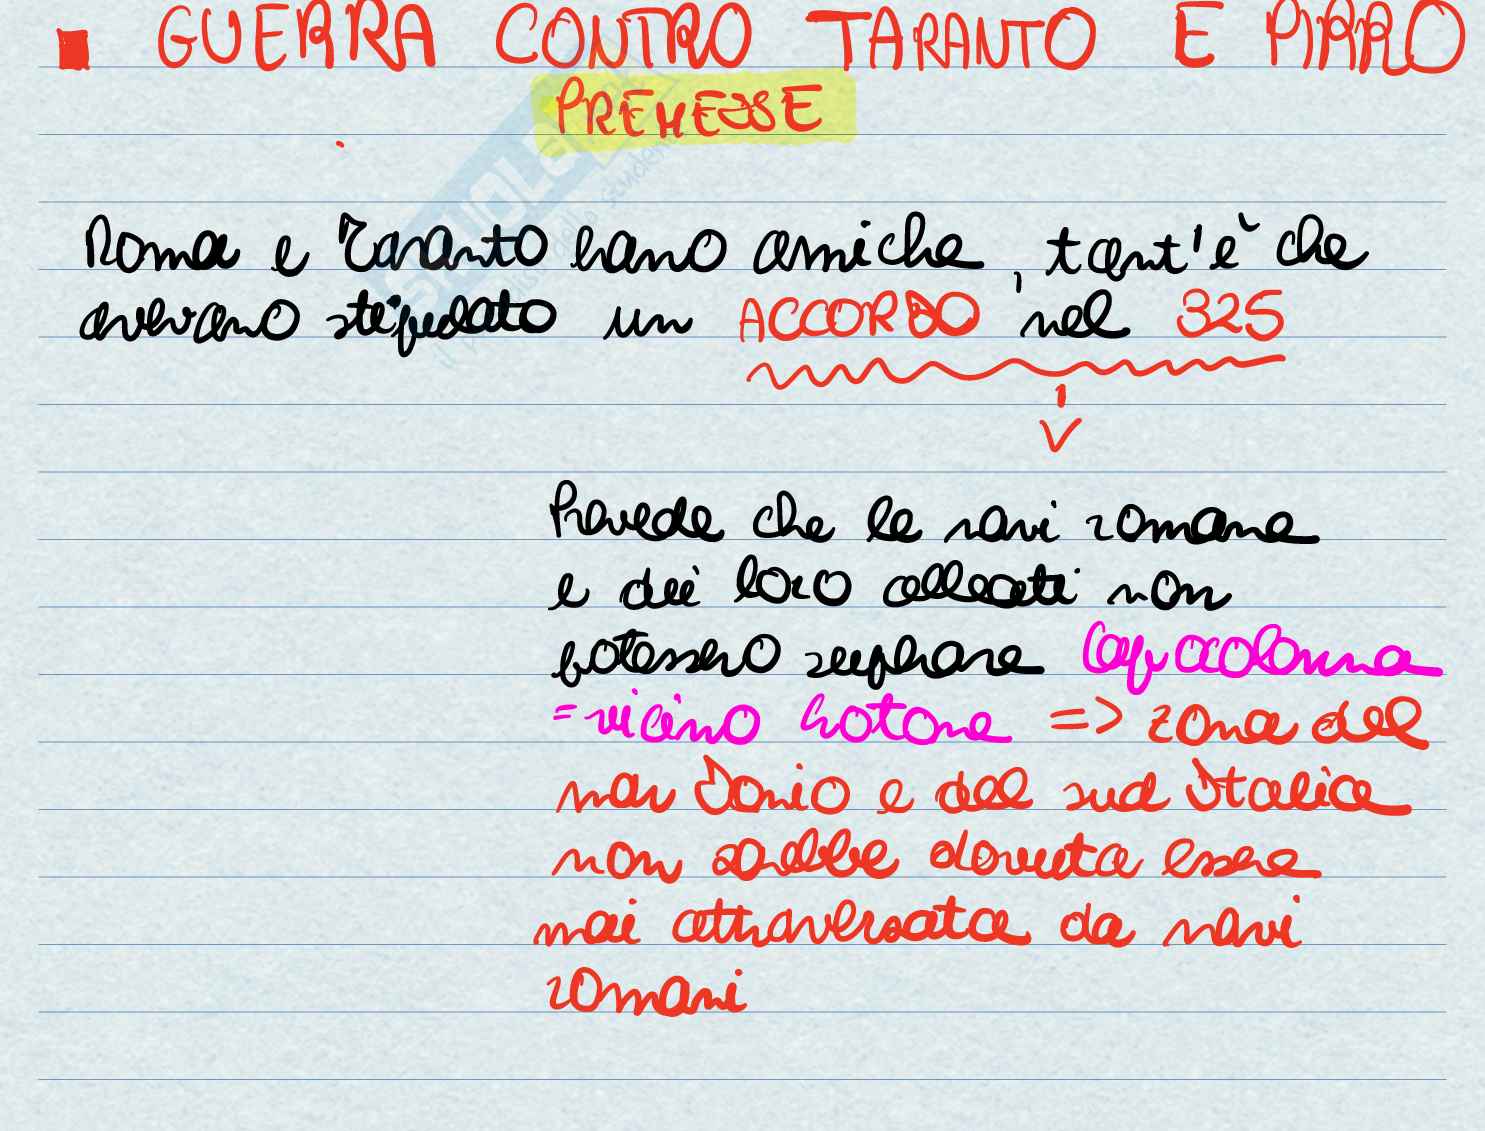 ▪ GUERRA CONTRO TARANTO E PIRRO
PREMESSE
Roma e Taranto erano amiche, tant'è che
avevano stipulato un ACCORDO nel 325
Prevede che le navi romane
e dei loro alleati non
potessero superare Capocolonna
= vicino Crotone => zona del
mar Ionio e del sud Italia
non sarebbe dovuta essere
mai attraversata da navi
romani